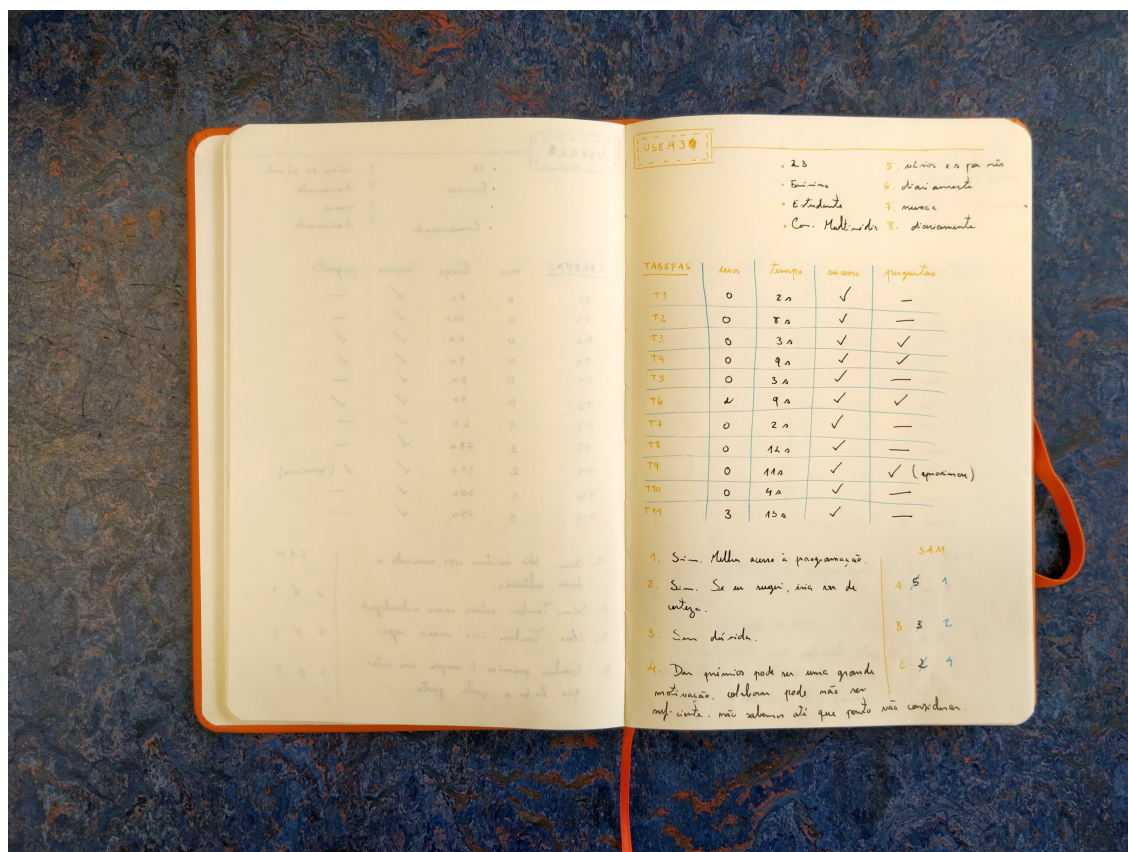 USER 3
• 23
• Feminino
• Estudante
• Com. Multimédia
5. vários es por mês
6. diariamente
7. nunca
8. diariamente
TAREFAS erros tempo sucesso perguntas
T1 0 2s ✓ —
T2 0 8s ✓ —
T3 0 3s ✓ ✓
T4 0 9s ✓ ✓
T5 0 3s ✓ —
T6 2 9s ✓ ✓
T7 0 2s ✓ —
T8 0 12s ✓ —
T9 0 11s ✓ ✓ (aproximar)
T10 0 4s ✓ —
T11 3 13s ✓ —
1. Sim. Melhor acesso à programação.
2. Sim. Se eu sugeri, iria ver de
certeza.
3. Sem dúvida.
4. Dar prémios pode ser uma grande
motivação. colaborar pode não ser
suficiente. não sabemos até que ponto vão considerar.
SAM
A 5 1
B 3 2
C 2 4